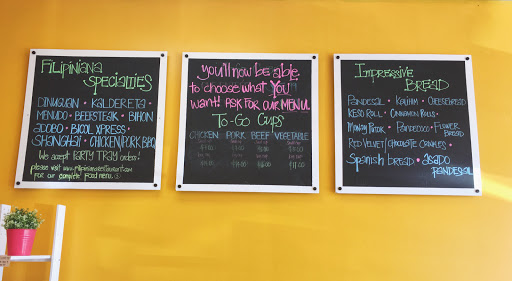 Filipiniana
Specialties
Dinuguan • Kaldereta •
Menudo • Beefsteak • Bihon
Adobo • Bicol Xpress •
Shanghai • Chicken/Pork BBQ
We accept PARTY TRAY orders!
please visit www.filipinianarestaurant.com
for our complete food menu.
you'll now be able
to choose what YOU
want! Ask for our MENU.
To-Go Cups
CHICKEN PORK BEEF VEGETABLE
Impressive
Bread
Pandesal • Kalihim • Cheesebread
Keso Roll • Cinnamon Rolls
Monay Putok • Pandecoco • Flower
Bread
Red Velvet/Chocolate Crinkles •
Spanish bread • Asado
Pandesal